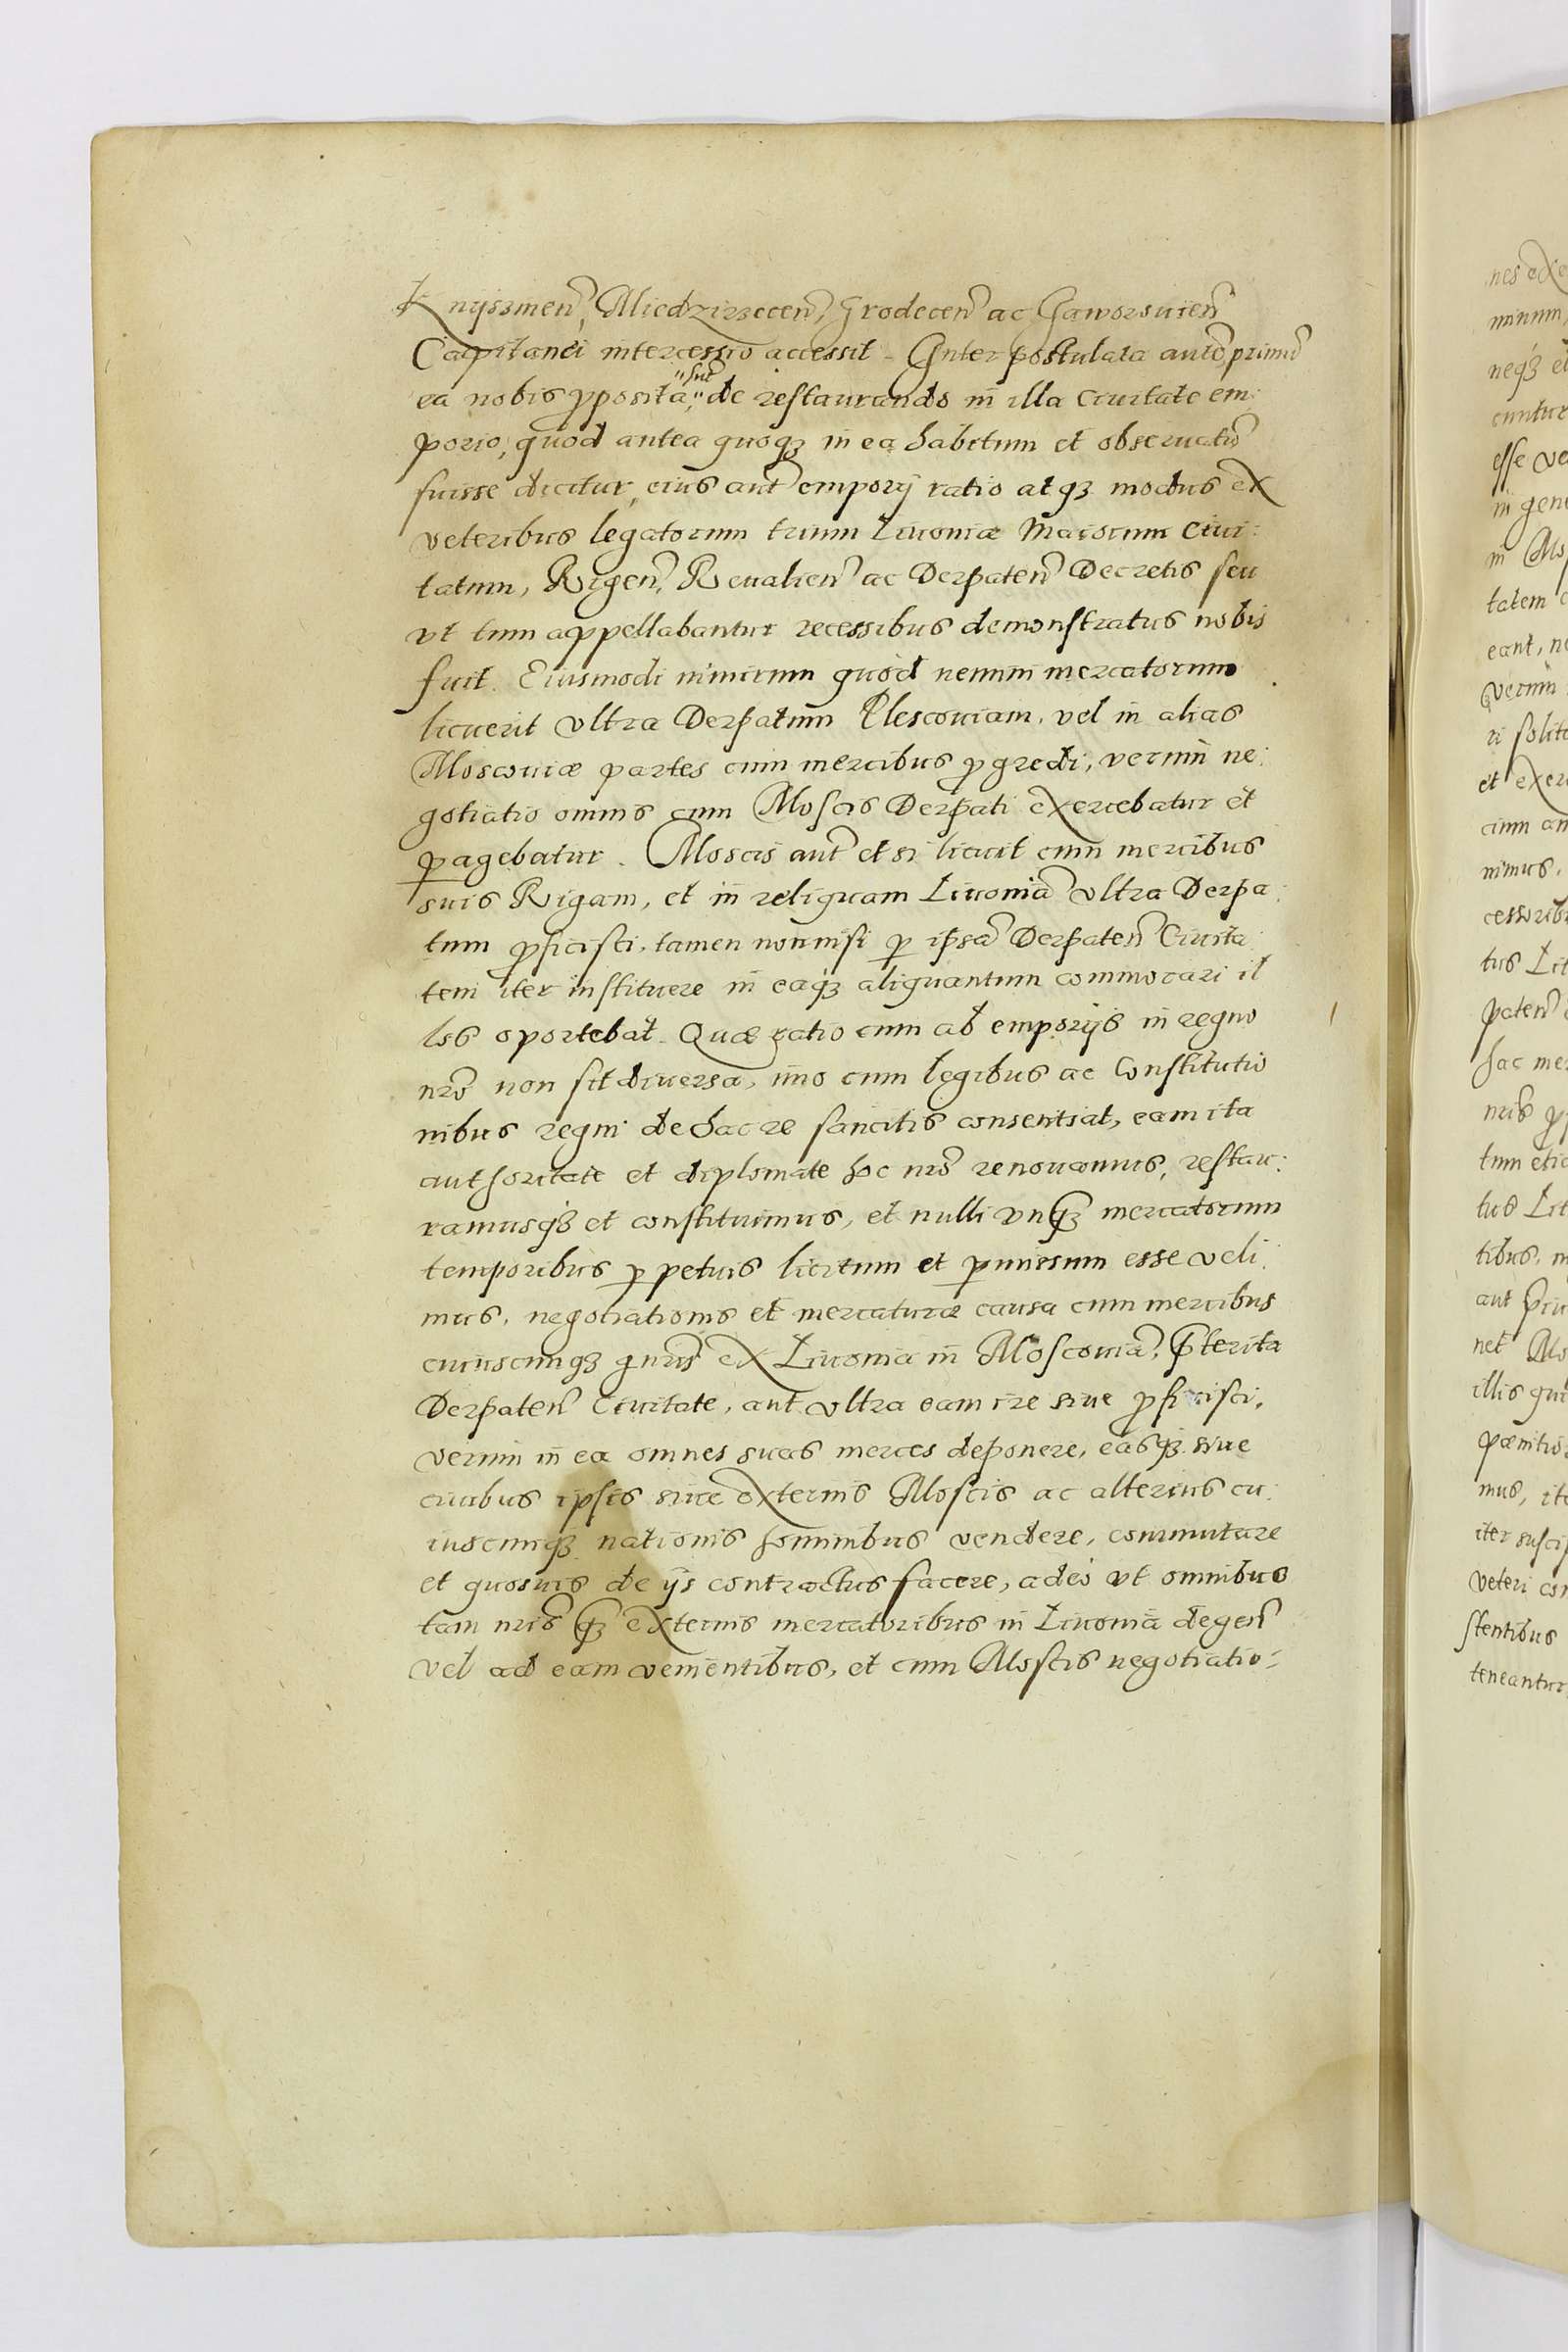 Knÿszmen̄, Miedzirzecen̄, Grodecen̄ ac Jaworouien̄
Capitanei intercessio accessit. Inter postulata autē primū
ea nobis ꝓposita sūt de restaurando in illa ciuitate em:
porio, quod antea quoqꝫ in ea habitum et obseruatū
fuisse dicitur, eius aut̄ emporij ratio atqꝫ modus ex
veteribus legatorum trium Liuoniæ Maiorum Ciui:
tatum, Rigen̄, Reualien̄ ac Derpaten̄ Decretis seu
vt tum appellabantur recessibus demonstratus nobis
fuit. Eiusmodi nimirum quod nemini mercatorum
licuerit vltra Derpatum Plescouiam, vel in alias
Moscouiæ partes cum mercibus ꝓgredi, verum ne:
gotiatio omnis cum Moscis Derpati exercebatur et
ꝑagebatur. Moscis aut̄ etsi licuit cum mercibus
suis Rigam, et in reliquam Liuoniā vltra Derpa:
tum ꝓficisci, tamen nonnisi ꝑ ipsā Derpaten̄ Ciuita
tem iter instituere in eaqꝫ aliquantum commorari il
los oportebat. Quæ ratio cum ab emporijs in regno
nr̄o non sit diuersa, imo cum legibus ac Constitutio
nibus regni de hac re sancitis consentiat, eam ita
authoritate et diplomate hoc nr̄o renouamus, restau:
ramusqꝫ et constituimus, et nulli vnqꝫ mercatorum
temporibus ꝑpetuis licitum et ꝑmissum esse veli:
mus, negotiationis et mercaturæ causa cum mercibus
cuiuscunqꝫ gnr̄is ex Liuonia in Moscouiā, p̄terita
Derpaten̄ Ciuitate, aut vltra eam ire siue ꝓficisci,
verum in ea omnes suas merces deponere, easqꝫ siue
ciuibus ipsis siue externis Moscis ac alterius cu:
iuscunqꝫ nationis hominibus vendere, commutare
et quosuis de ijs contractus facere, adeò vt omnibus
tam nr̄is qꝫ externis mercatoribus in Liuonia degen̄
vel ad eam venientibus, et cum Moscis negotiatio: